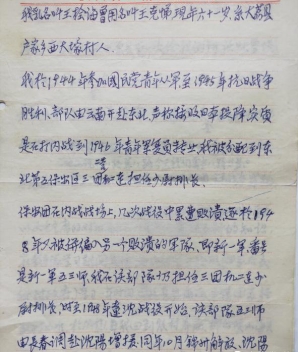 我乳名叫王检油曾用名叫王克悌现年六十一岁,家大荔县
卢家乡西大壕村人.
我于1944年参加国民党青年从军至1945年抗日战争
胜利,部队由云南开赴东北,声称接收日本投降,实质
是在打内战到1946年青年军复员转业我被分配到东
北第五保安区三团机连担任少尉排长.
保安团在内战战场上,几次战役中累遭败溃遂于194
年 被拼编入另一个败溃的军队,即新一军,番号
是新一军五三师,我在该部队仍担任三团机二连少
尉排长,时至1948年辽沈战役开始,该部队五三师
由长春调赴沈陽增援,同年10月锦州解放,沈陽